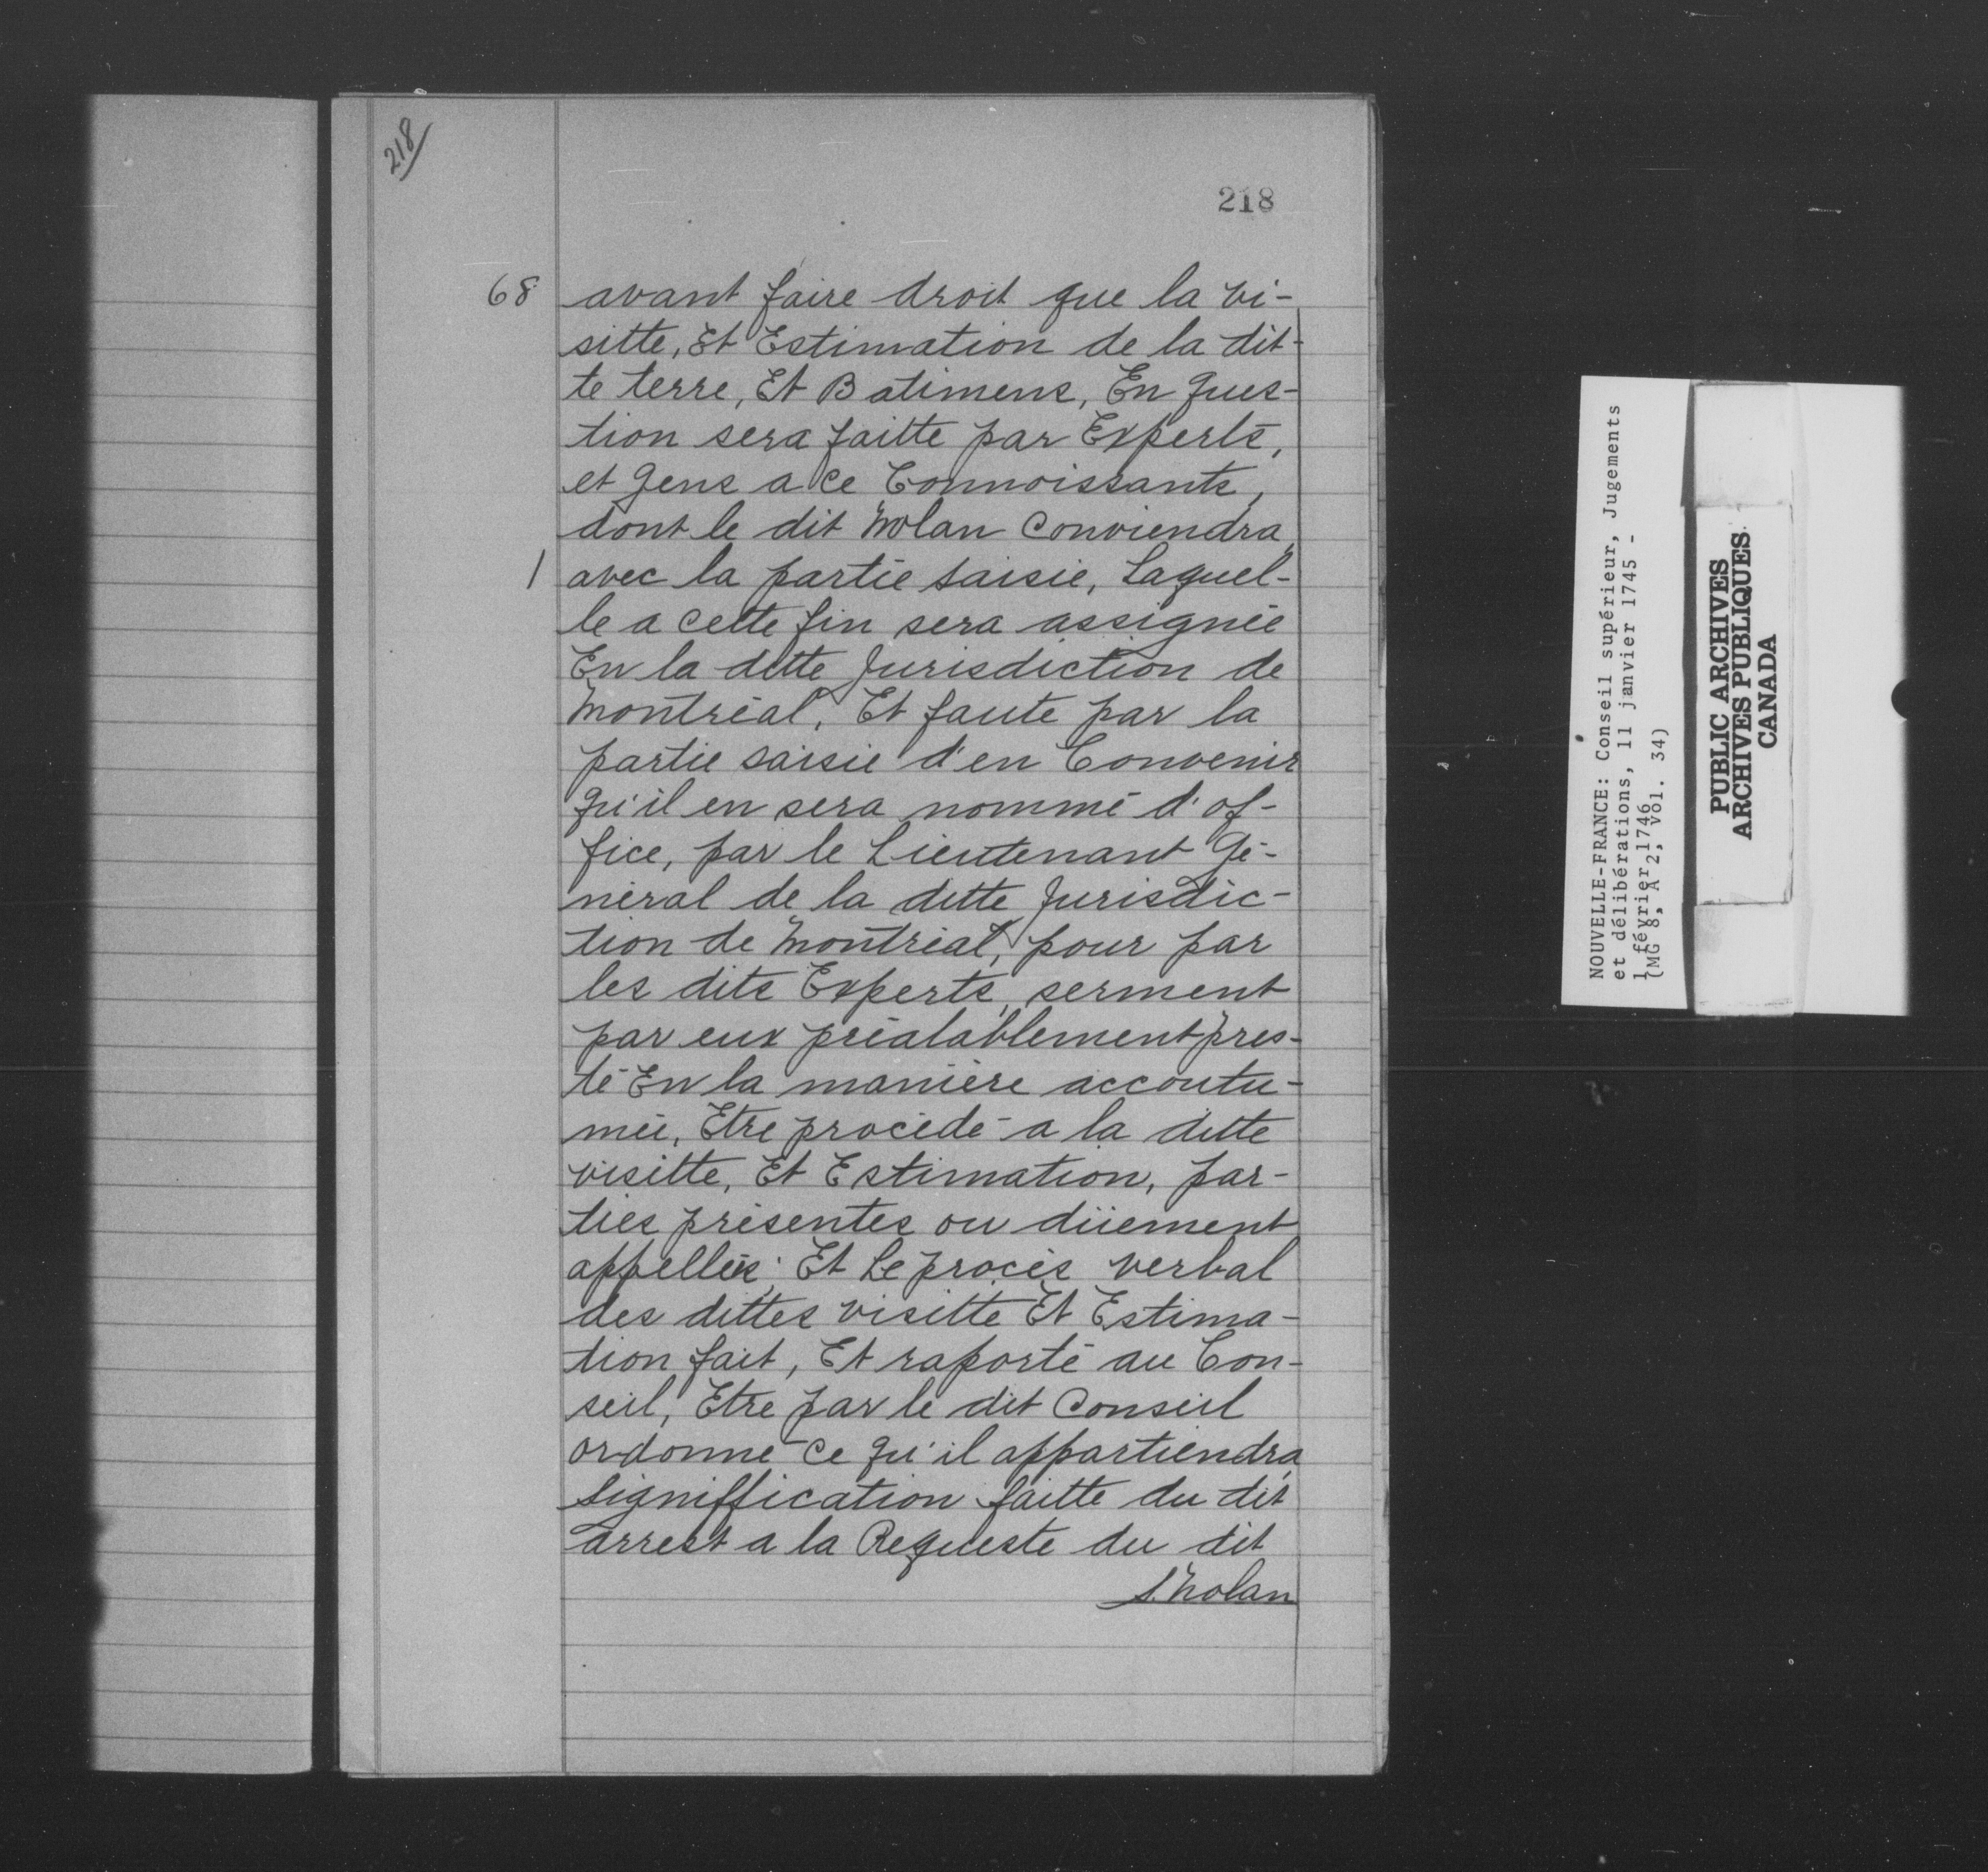 218
218
68 avant faire droit que la vi-
sitte, Et Estimation de la dit-
te terre, Et Batimens, En ques-
tion sera faitte par Experts,
et gens a ce Connoissants,
dont le dit Nolan Conviendra
/ avec la partie saisie, Laquel-
le a cette fin sera assignée
En la ditte Jurisdiction de
Montréal, Et faute par la
partie saisie d'en Convenir
qu'il en sera nommé d'of-
fice, par le Lieutenant Gé-
néral de la ditte Jurisdic-
tion de Montréal, pour par
les dits Experts, serment
par eux préalablement pres-
té En la manière accoutu-
mée, Etre procédé a la ditte
visitte, Et Estimation, par-
ties présentes ou düement
appellées; Et Le procès verbal
des dittes visitte Et Estima-
tion fait, Et raporté au Con-
seil, Etre par le dit Conseil
ordonné ce qu'il appartiendra,
Signiffication faitte du dit
arrest a la Requeste du dit
S. Nolan
NOUVELLE-FRANCE: Conseil supérieur, Jugements
et délibérations, 11 janvier 1745 -
1 février 1746
(MG 8, A 2, vol. 34)
PUBLIC ARCHIVES
ARCHIVES PUBLIQUES
CANADA